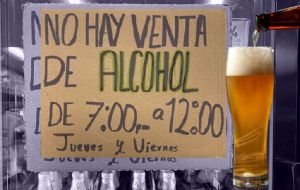 NO HAY VENTA
DE ALCOHOL
DE 7:00,- a 12:00
Jueves y Viernes